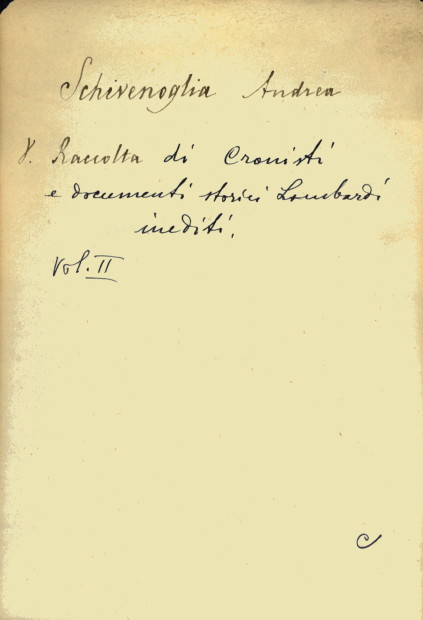 Schivenoglia Andrea
V. Raccolta di Cronisti
e documenti storici Lombardi
inediti.
Vol. II
C